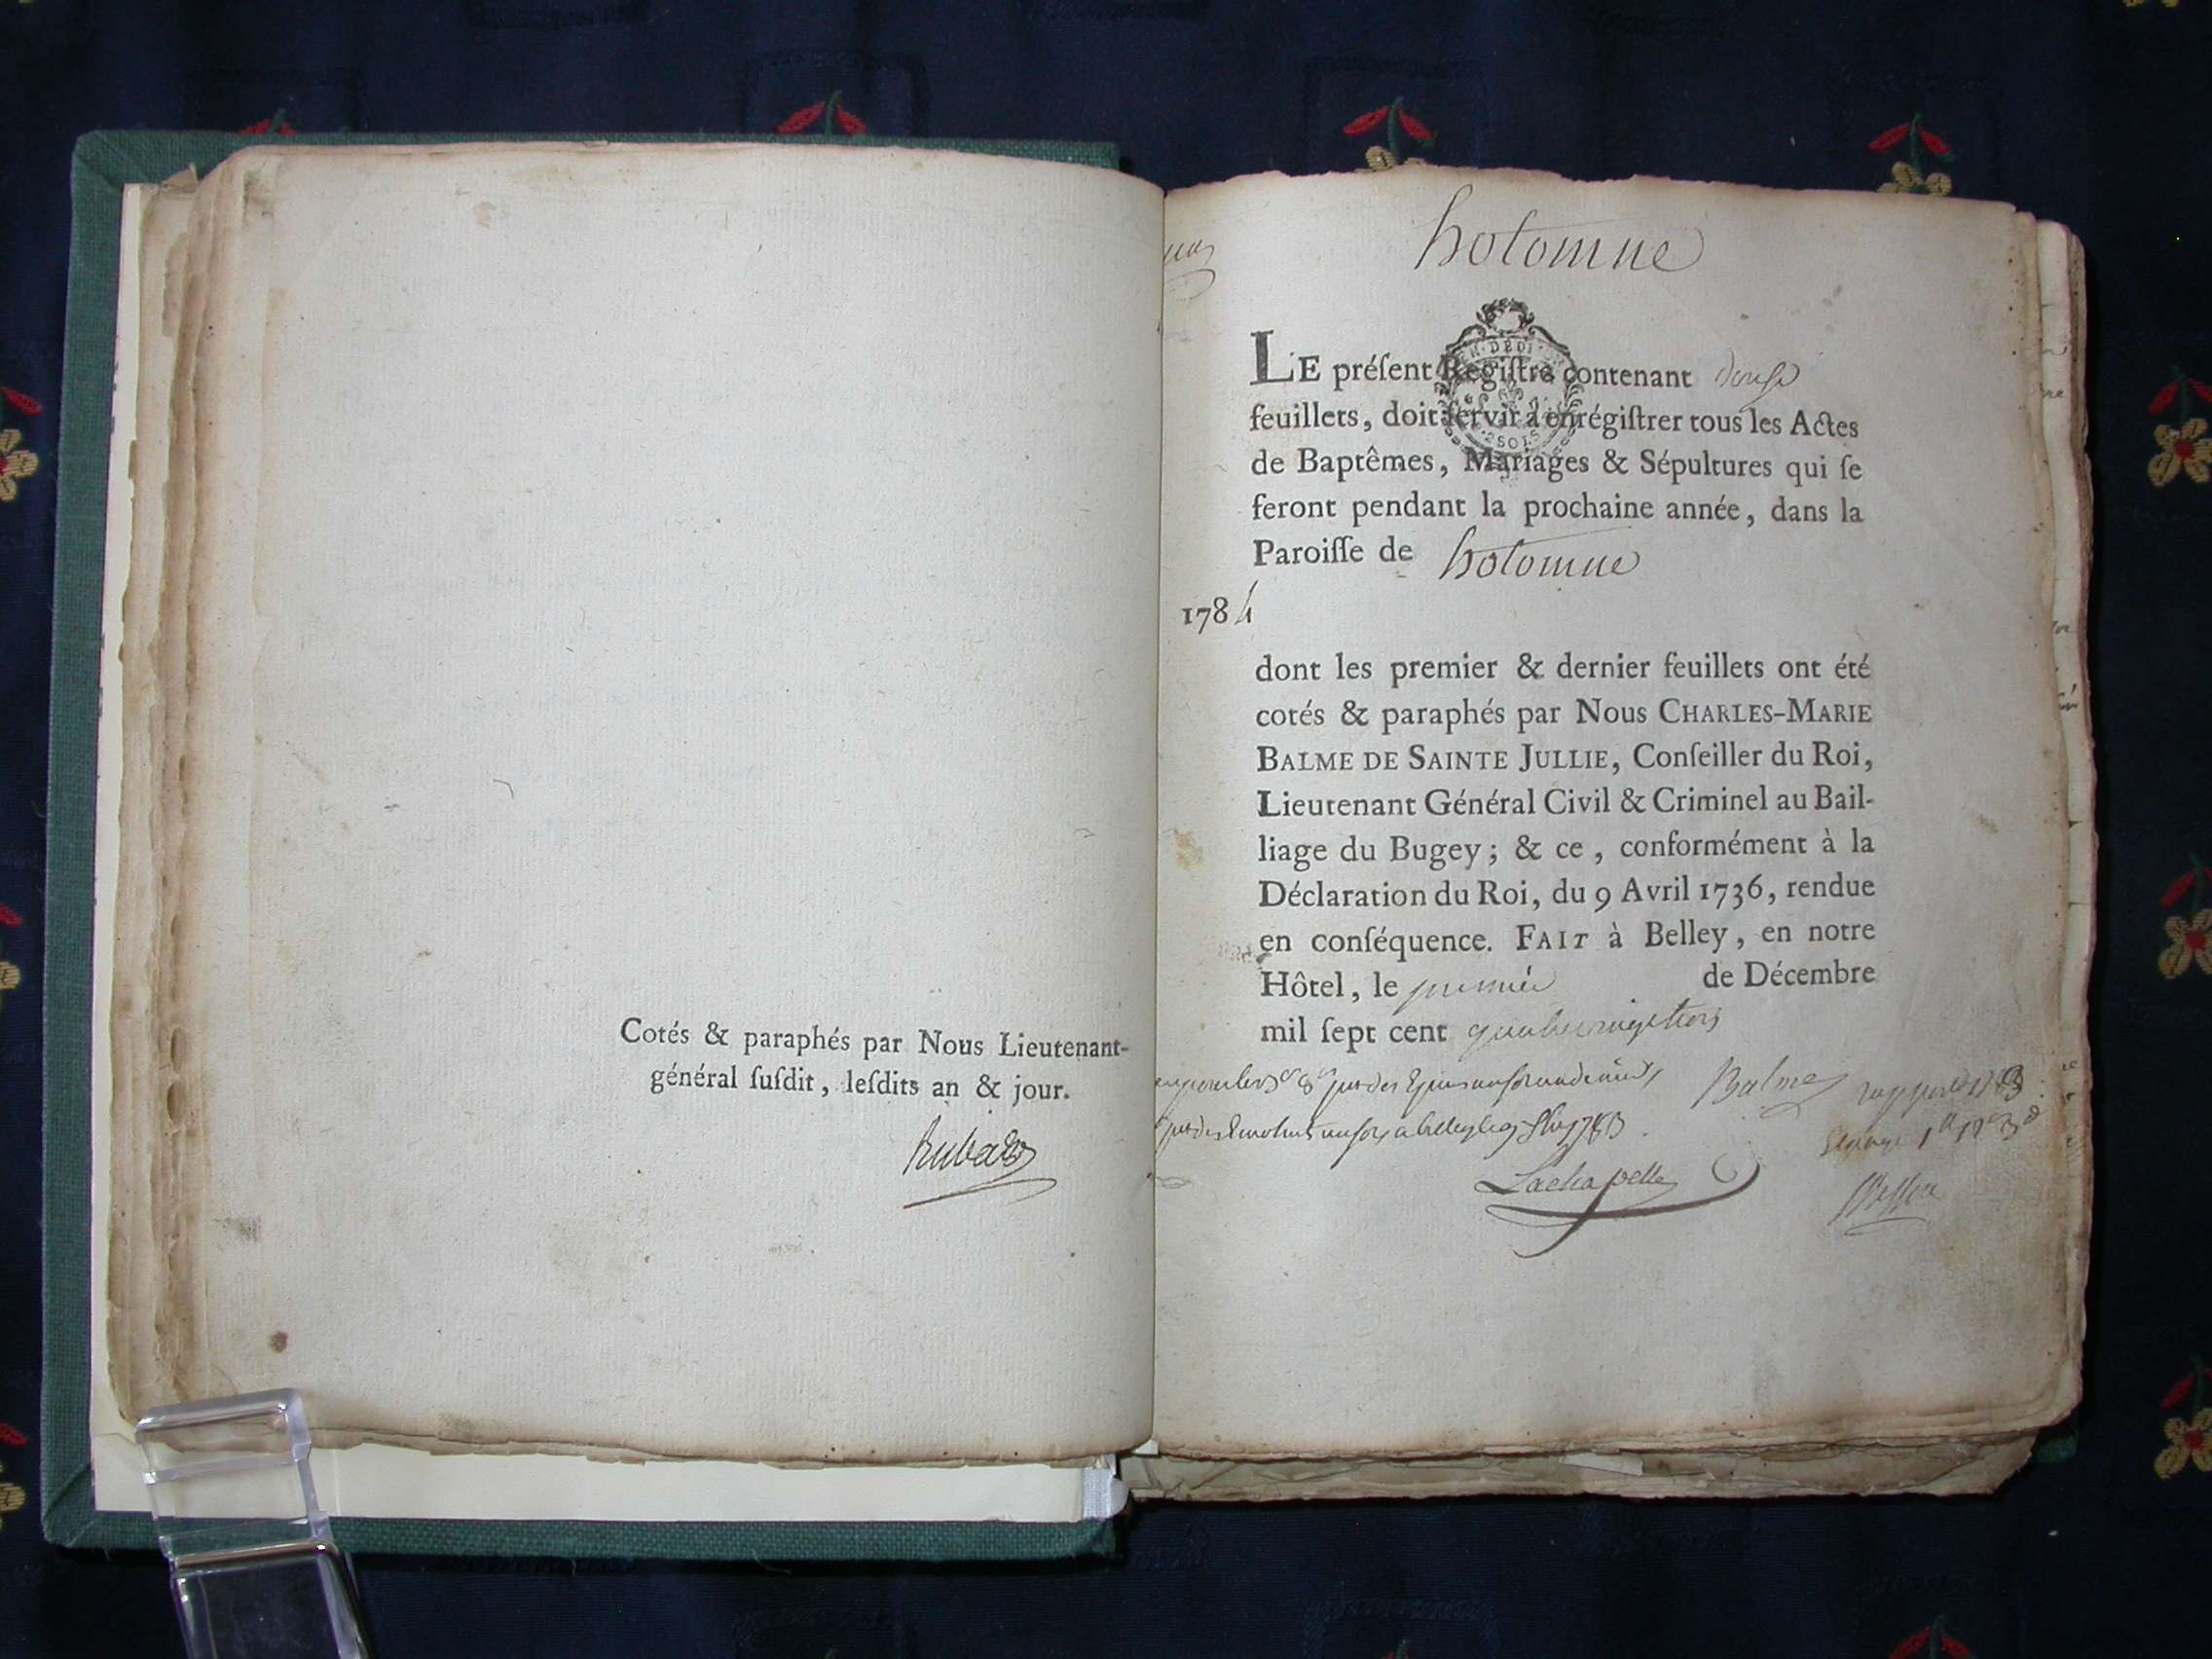 Cotés & paraphés par Nous Lieutenant-
général ſuſdit, leſdits an & jour.
hotomne
LE préſent Regiſtre contenant douze
feuillets, doit ſervir à enrégiſtrer tous les Actes
de Baptêmes, Mariages & Sépultures qui ſe
feront pendant la prochaine année, dans la
Paroiſſe de hotomne
1784
dont les premier & dernier feuillets ont été
cotés & paraphés par Nous CHARLES-MARIE
BALME DE SAINTE JULLIE, Conſeiller du Roi,
Lieutenant Général Civil & Criminel au Bail-
liage du Bugey; & ce, conformément à la
Déclaration du Roi, du 9 Avril 1736, rendue
en conſéquence. FAIT à Belley, en notre
Hôtel, le premier de Décembre
mil ſept cent quatrevingttrois
Balme
Lachapelle